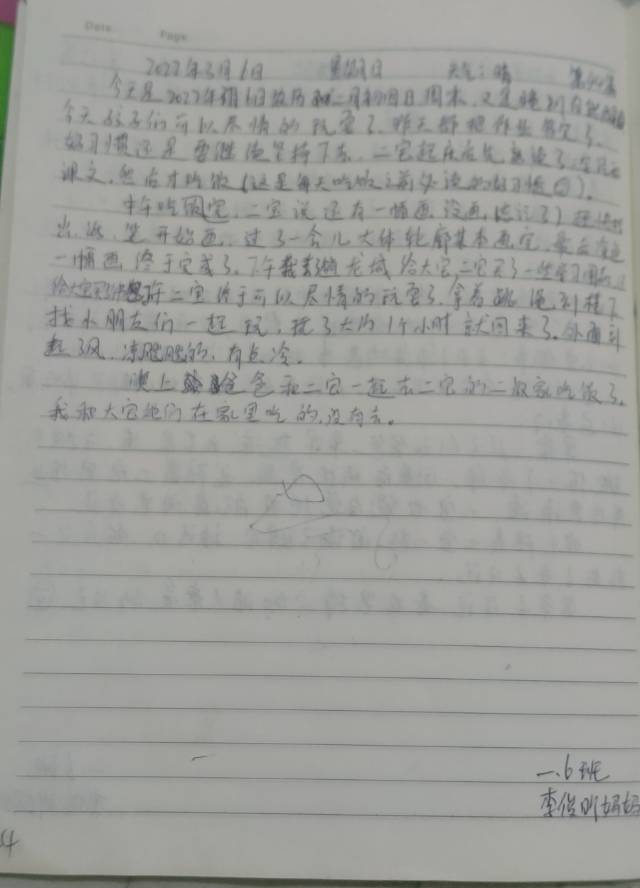 Date Page
2022年3月6日 星期日 天气:晴
今天是2022年3月6日农历二月初四日周末,又是睡到自然
今天孩子们可以尽情的玩耍了,昨天都把作业写完了,
好习惯还是要继续坚持下去,二宝起床后先熟读了
课文,然后才吃饭(这是每天吃饭之前必读的好习惯☺)。
中午吃完,二宝说还有一幅画没画,
出纸,笔开始画,过了一会儿大体轮廓基本画完,最后
一幅画终于完成了,下午我去龙城给大宝,二宝买了一些学习用品
二宝终于可以尽情的玩耍了,拿着跳绳到楼下
找小朋友们一起玩,玩了大约1个小时就回来了,外面刮
起了风,凉飕飕的,有点冷。
晚上爸爸和二宝一起去二宝的二叔家吃饭了,
我和大宝他们在家里吃的,没有去。
一.6班
李俊昕妈妈
4